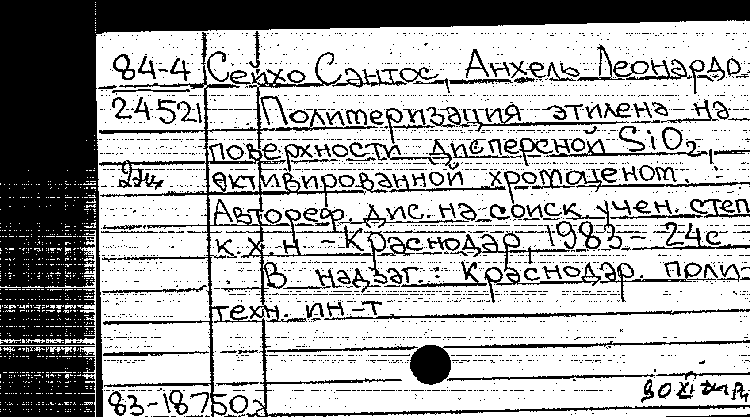 84-4 Сейхо Сантос, Анхель Леонардо.
24521 Полимеризация этилена на
поверхности дисперсной SiO2,
2эк. активированной хромоценом.
Автореф. дис. на соиск. учен. степ
к. х. н - Краснодар, 1983 - 24с
В надзаг.: Краснодар. поли-
техн. ин-т.
83-18750а